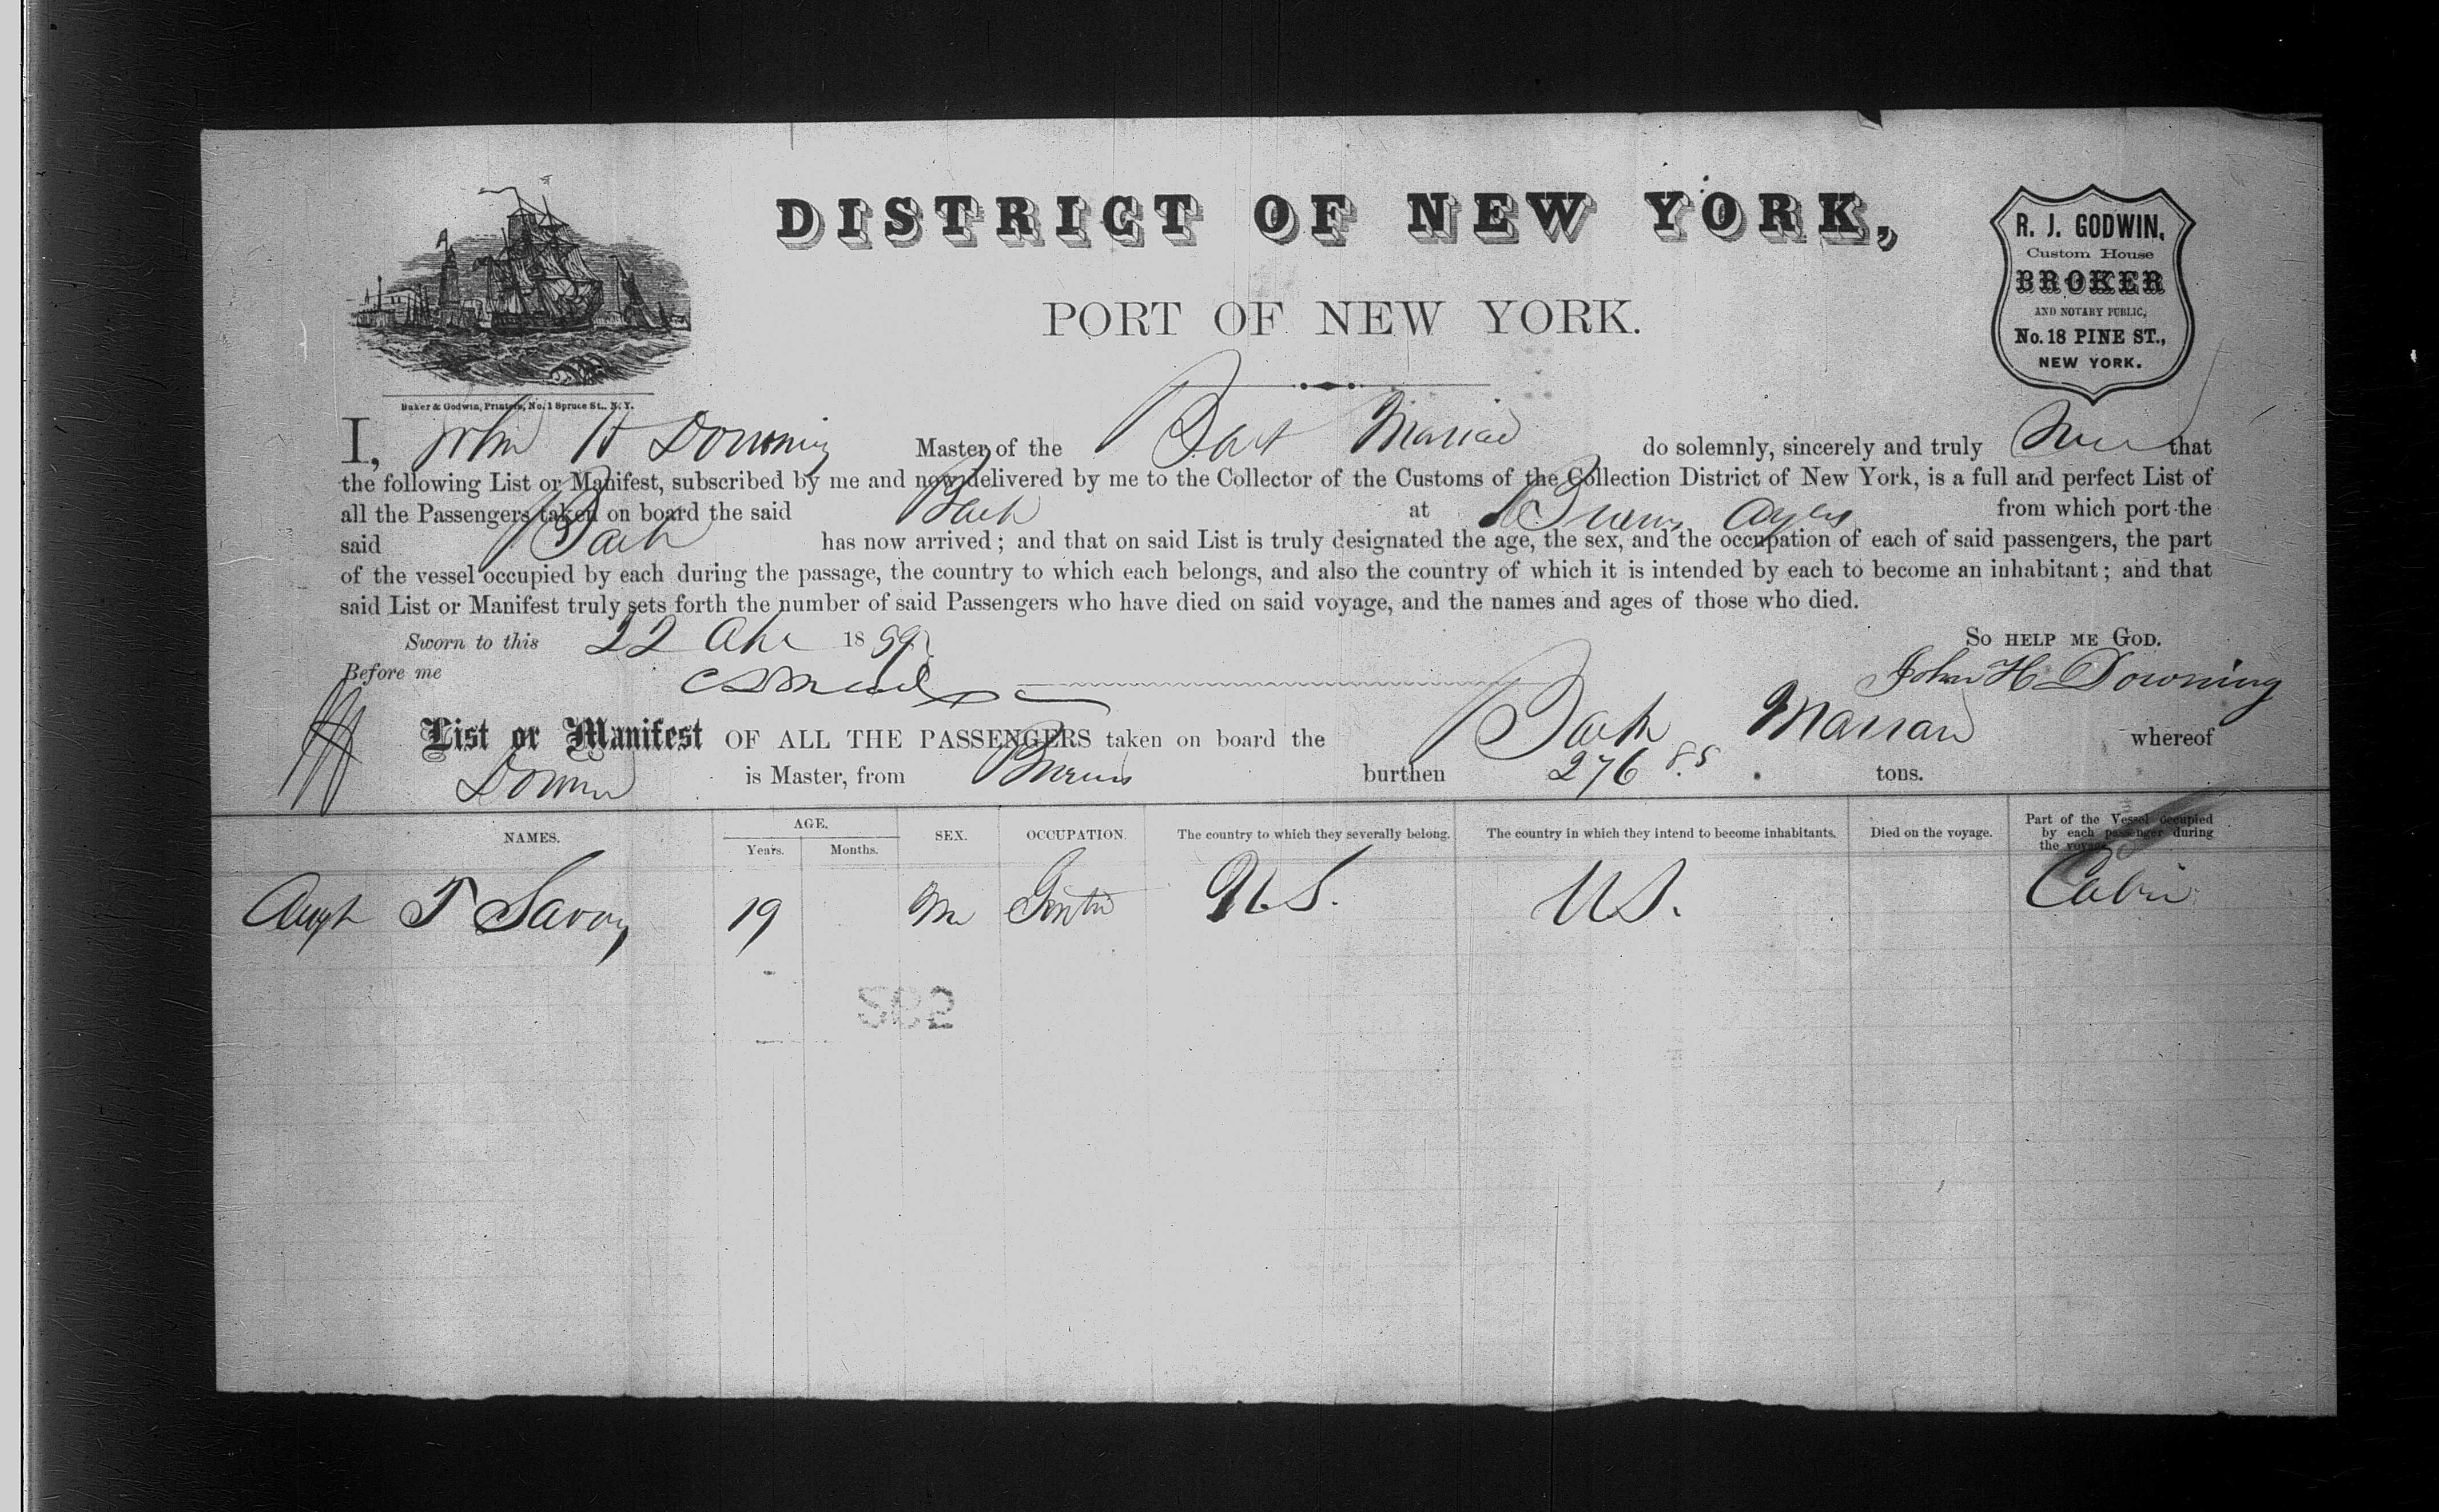 DISTRICT OF NEW YORK,
PORT OF NEW YORK.
R. J. GODWIN,
Custom House
BROKER
AND NOTARY PUBLIC,
No. 18 PINE ST.,
NEW YORK.
Baker & Godwin, Printers, No. 1 Spruce St., N. Y.
I, John H Downing Master of the Bark Marian do solemnly, sincerely and truly that
the following List or Manifest, subscribed by me and now delivered by me to the Collector of the Customs of the Collection District of New York, is a full and perfect List of
all the Passengers taken on board the said Bark at Buenos Ayres from which port the
said Bark has now arrived; and that on said List is truly designated the age, the sex, and the occupation of each of said passengers, the part
of the vessel occupied by each during the passage, the country to which each belongs, and also the country of which it is intended by each to become an inhabitant; and that
said List or Manifest truly sets forth the number of said Passengers who have died on said voyage, and the names and ages of those who died.
Sworn to this 22 1859 SO HELP ME GOD.
Before me John H Downing
List or Manifest OF ALL THE PASSENGERS taken on board the Bark Marian whereof
is Master, from burthen 276 85 tons.
NAMES. AGE. SEX. OCCUPATION. The country to which they severally belong. The country in which they intend to become inhabitants. Died on the voyage. Part of the Vessel occupied by each passenger during the voyage.
Years. Months.
T Savoy 19 M US. US. Cabin